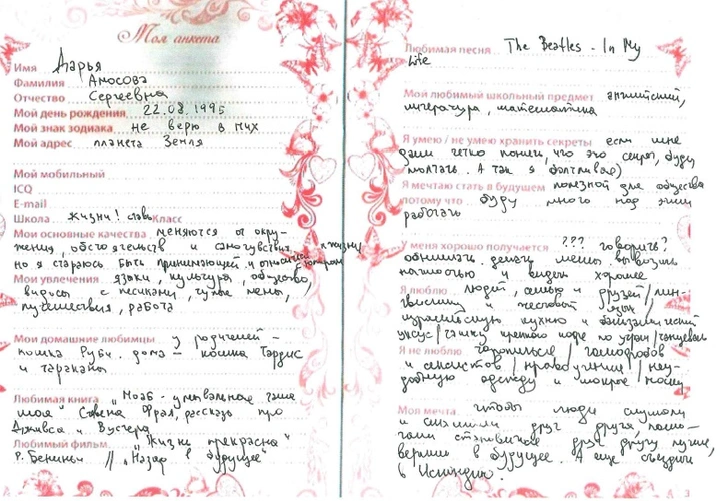 Моя анкета
Имя Дарья
Фамилия Амосова
Отчество Сергеевна
Мой день рождения 22.08.1995
Мой знак зодиака не верю в них
Мой адрес планета Земля
Мой мобильный
ICQ
E-mail
Школа жизни! Класс
Мои основные качества меняются от окру-
жения, обстоятельств и самочувствия,
но я стараюсь быть принимающей и относиться к жизни с юмором
Мои увлечения языки, культура, общество,
видосы с песиками, тупые мемы,
путешествия, работа
Мои домашние любимцы у родителей -
кошка Руби. дома - кошка Тардис
и тараканы
Любимая книга "Моав - умывальная чаша
моя" Стивена Фрая, рассказы про
Дживса и Вустера
Любимый фильм "Жизнь прекрасна"
Р. Бениньи // "Назад в будущее"
Любимая песня The Beatles - In My
Life
Мой любимый школьный предмет английский,
литература, математика
Я умею / не умею хранить секреты если мне
дали четко понять, что это секрет, буду
молчать. А так я болтливая)
Я мечтаю стать в будущем полезной для общества
потому что буду много над этим
работать
У меня хорошо получается ??? говорить?
обнимать, делать мемы,
и видеть хорошее
Я люблю людей, семью и друзей / лин-
гвистику и жестовый язык /
израильскую кухню и бальзамический
уксус / чашку крепкого кофе по утрам / танцевать
Я не люблю торопиться / гомофобов
и сексистов / нравоучения / неу-
добную одежду и мокрые носки
Моя мечта чтобы люди слушали
и слышали друг друга, помо-
гали становиться друг другу лучше,
верили в будущее. А еще съездить
в Исландию.
3